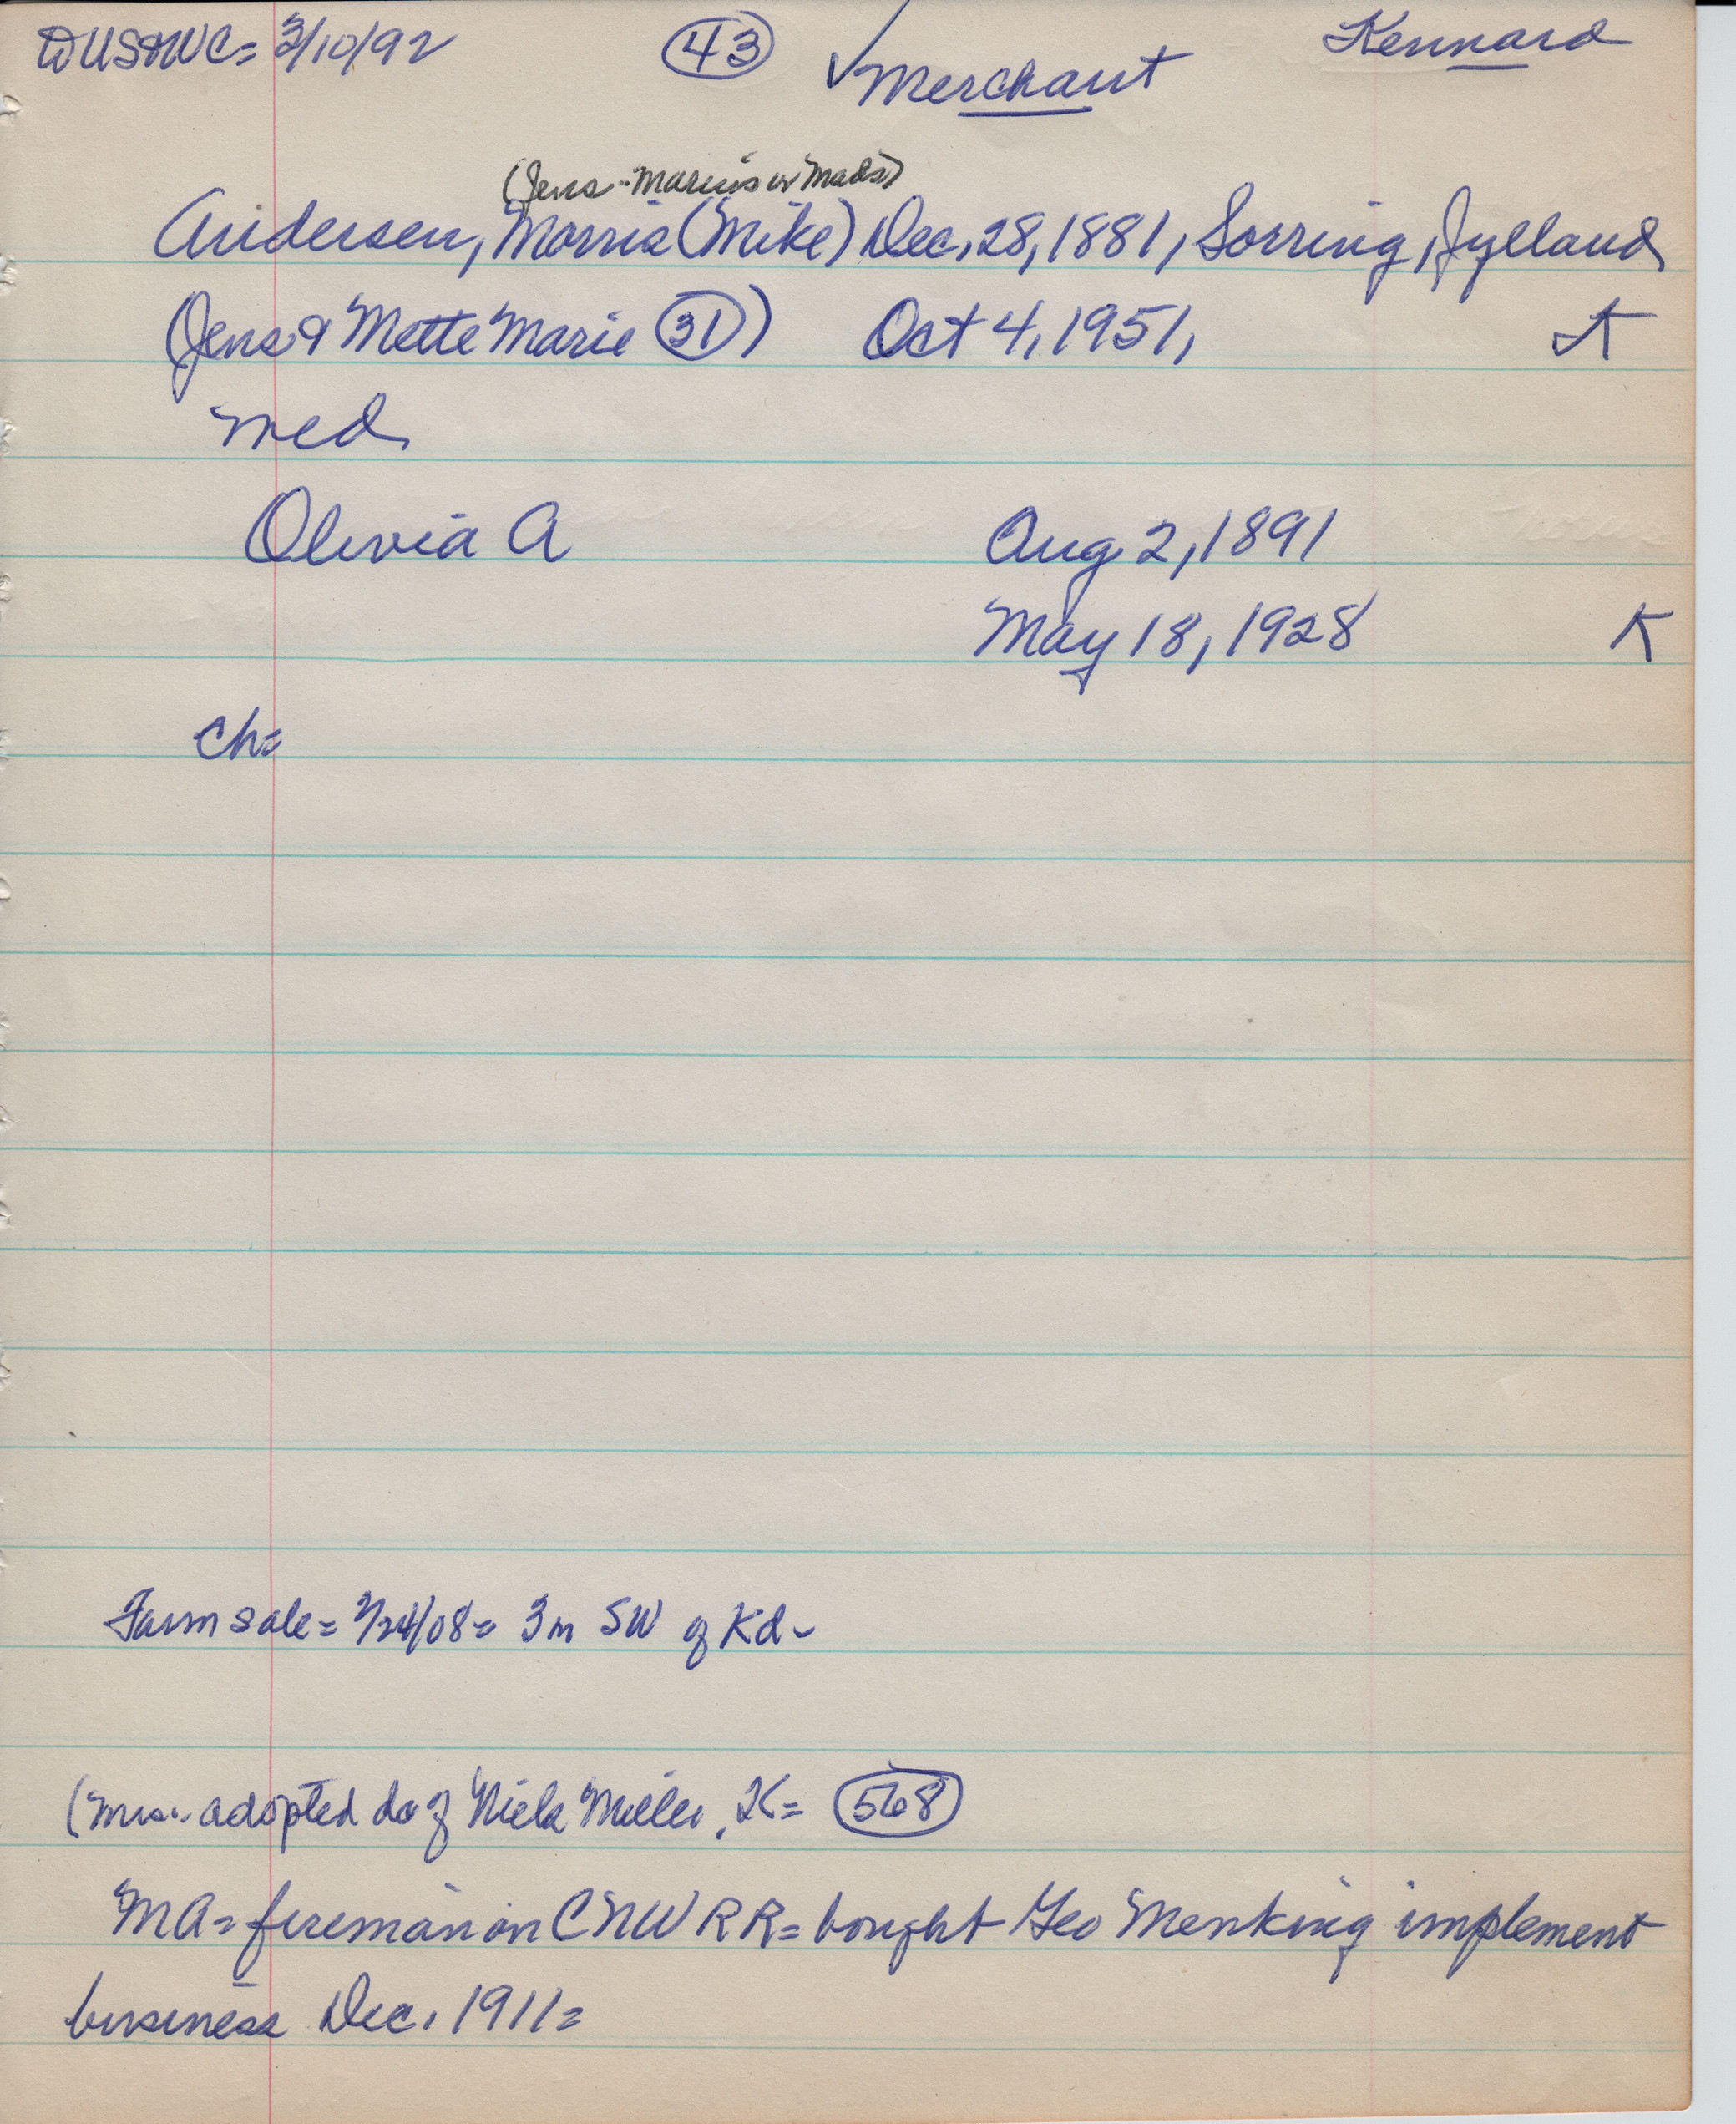 DUSAWC= 3/10/92 43 ✓ Merchant Kennard
(Jens - Marius or Mads)
Andersen, Morris (Mike) Dec, 28, 1881, Sorring, Jylland
(Jens & Mette Marie 31) Oct 4, 1951, K
med
Olivia A Aug 2, 1891
May 18, 1928 K
ch=
Farm sale= 2/24/08= 3m SW of Kd-
(Mrs. adopted da of Niels Miller, K= 568
MA= fireman on CNW RR= bought Geo Menking implement
business Dec. 1911=